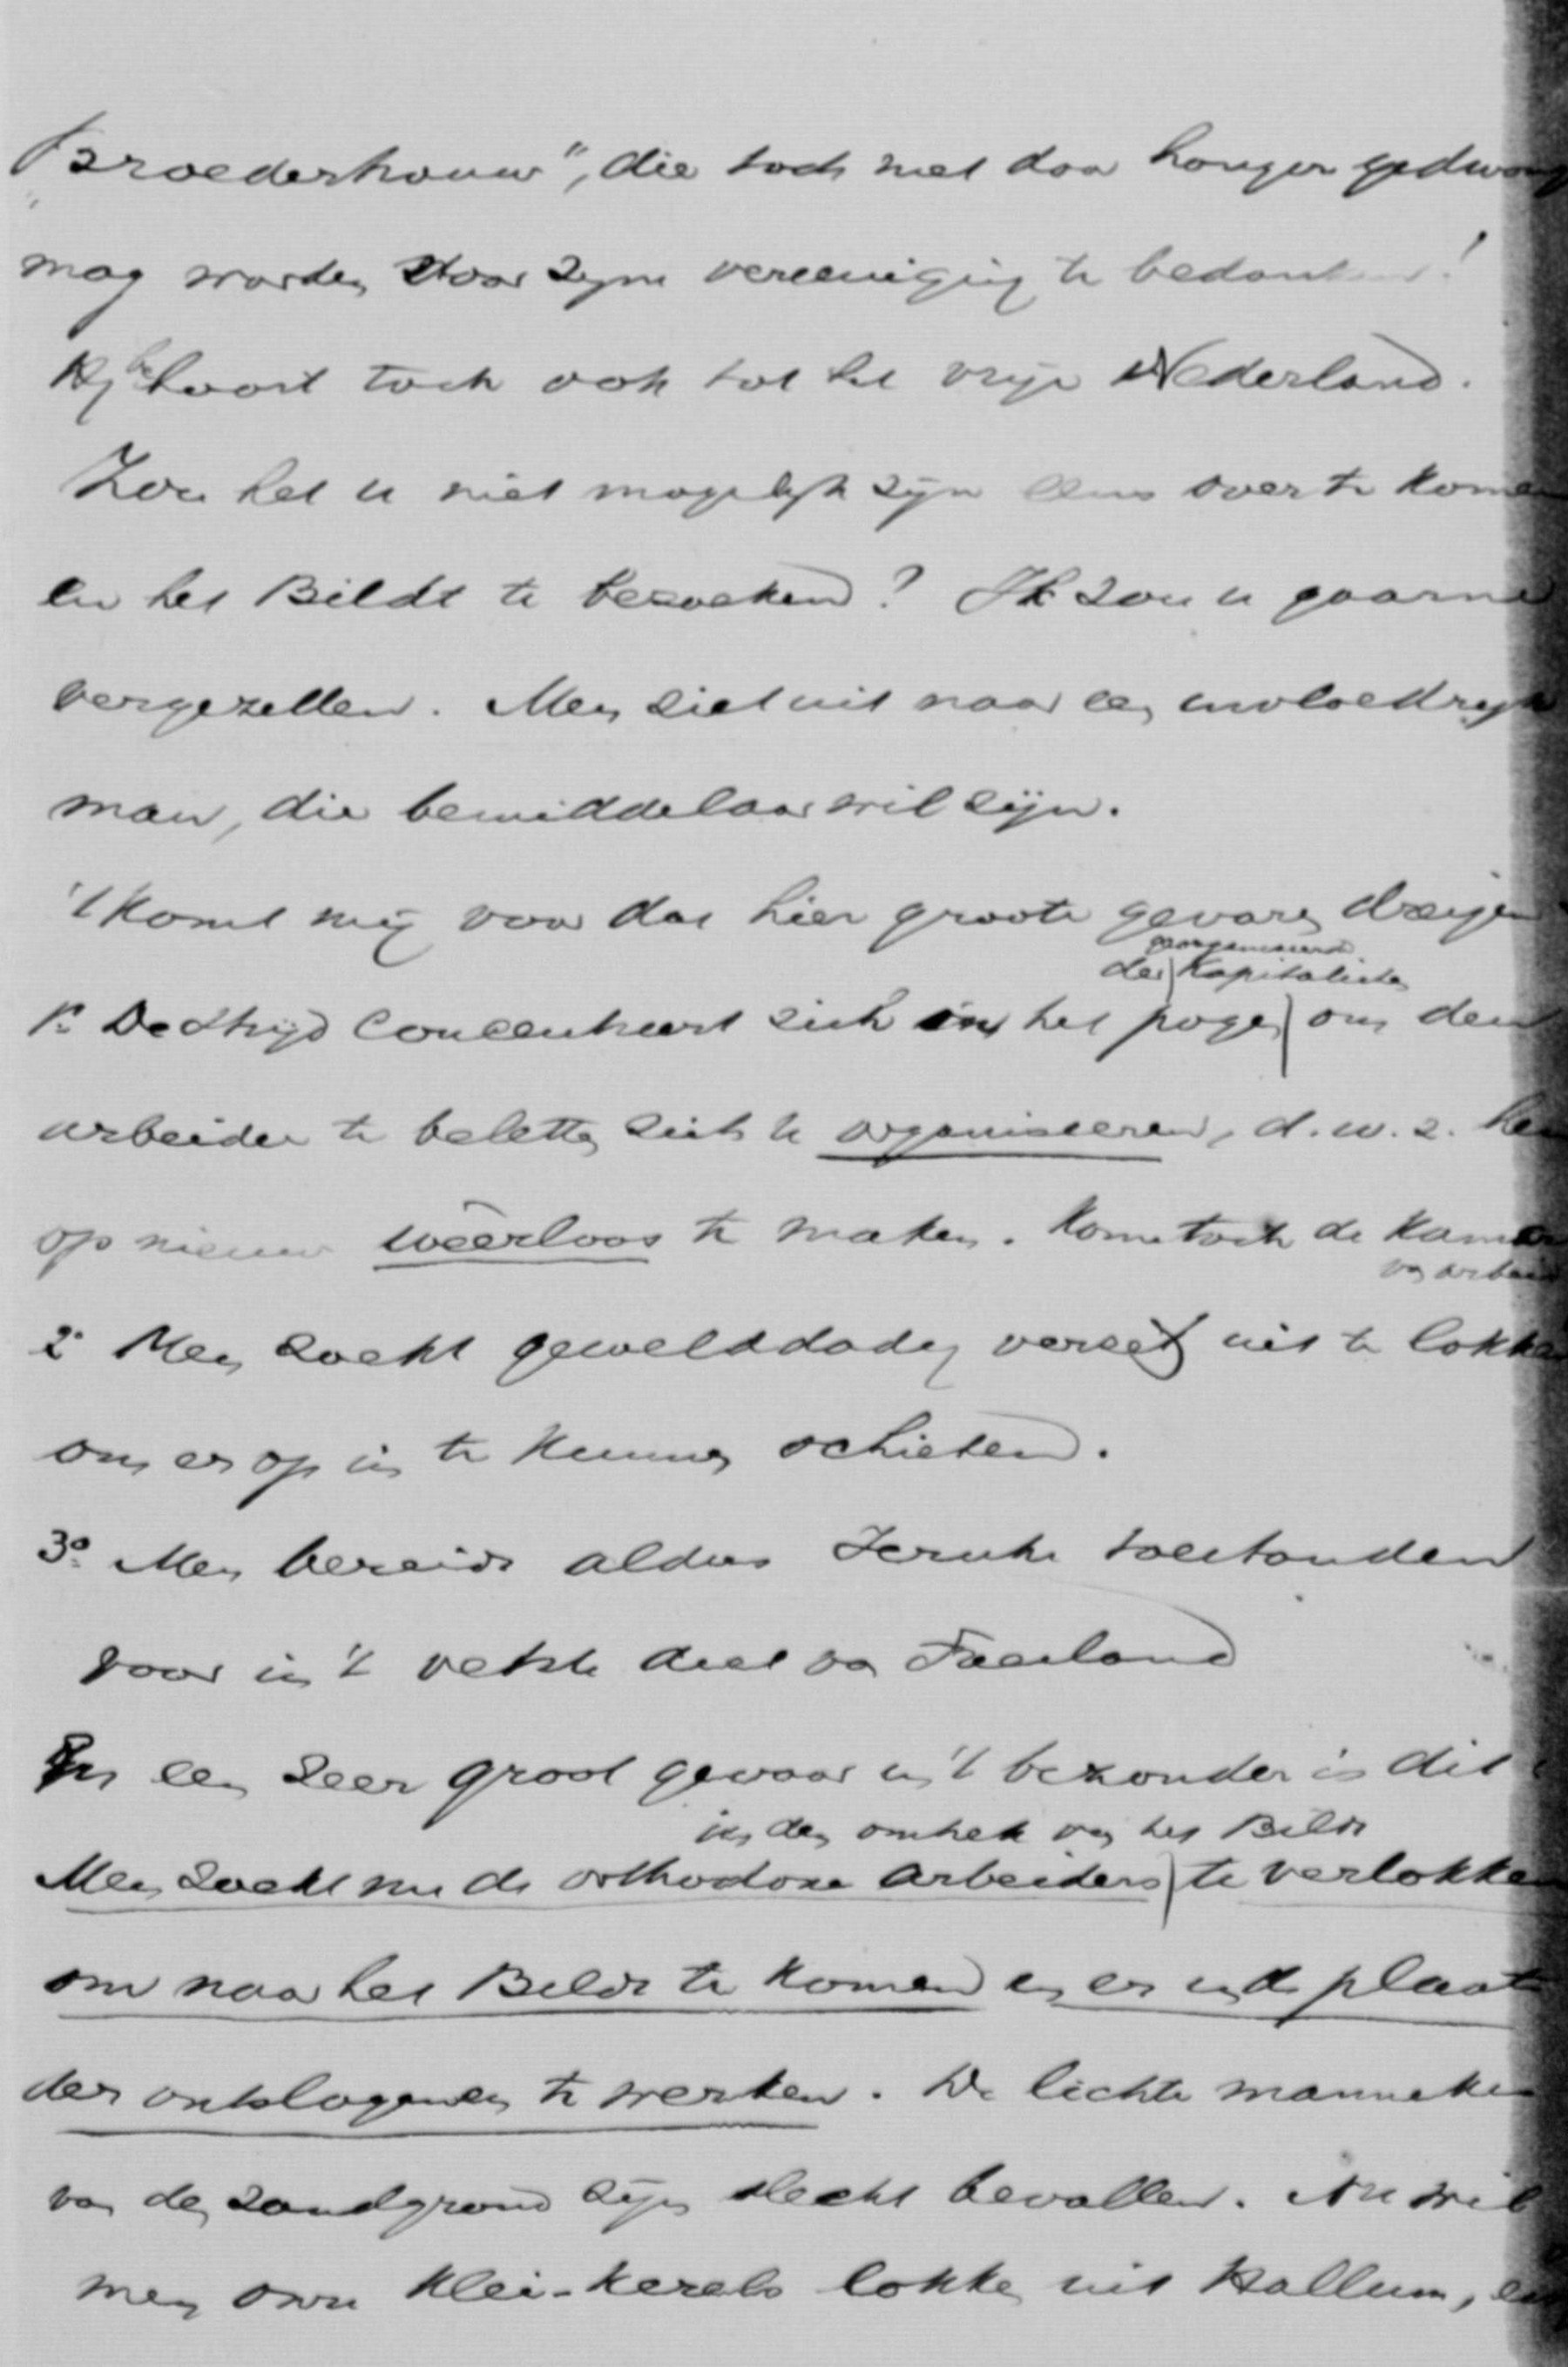 „Broederhouw", die toch niet door honger gedwong
mag worden voor zijn vereeniging te bedanken!
Hij behoort toch ook tot het vrije Nederland.
Zou het u niet mogelijk zijn eens over te komen
en het Bildt te bezoeken? Ik zou u gaarne
vergezellen. Men ziet uit naar een invloedrijk
man, die bemiddelaar wil zijn.
't Komt mij voor dat hier groote gevaren dreigen
georganiseerde
der kapitalisten
1º De strijd concentreert zich in het pogen om den
arbeider te beletten zich te organiseeren, d.w.z. hem
op nieuw wéerloos te maken. Kome toch de Kamer
van arbeid
2º Men zoekt gewelddadig verzet uit te lokken
om er op in te kunnen schieten.
3º Men bereidt aldus Iersche toestanden
voor in 't vetste deel van Friesland
En een zeer groot gevaar in 't bezonder is dit
in den omtrek van het Bildt
Men zoekt nu de orthodoxe arbeiders te verlokken
om naar het Bildt te komen en er in de plaats
der ontslagenen te werken. De lichte mannekens
van den zandgrond zijn slecht bevallen. Nu wil
men onze klei-kerels lokken uit Hallum, en